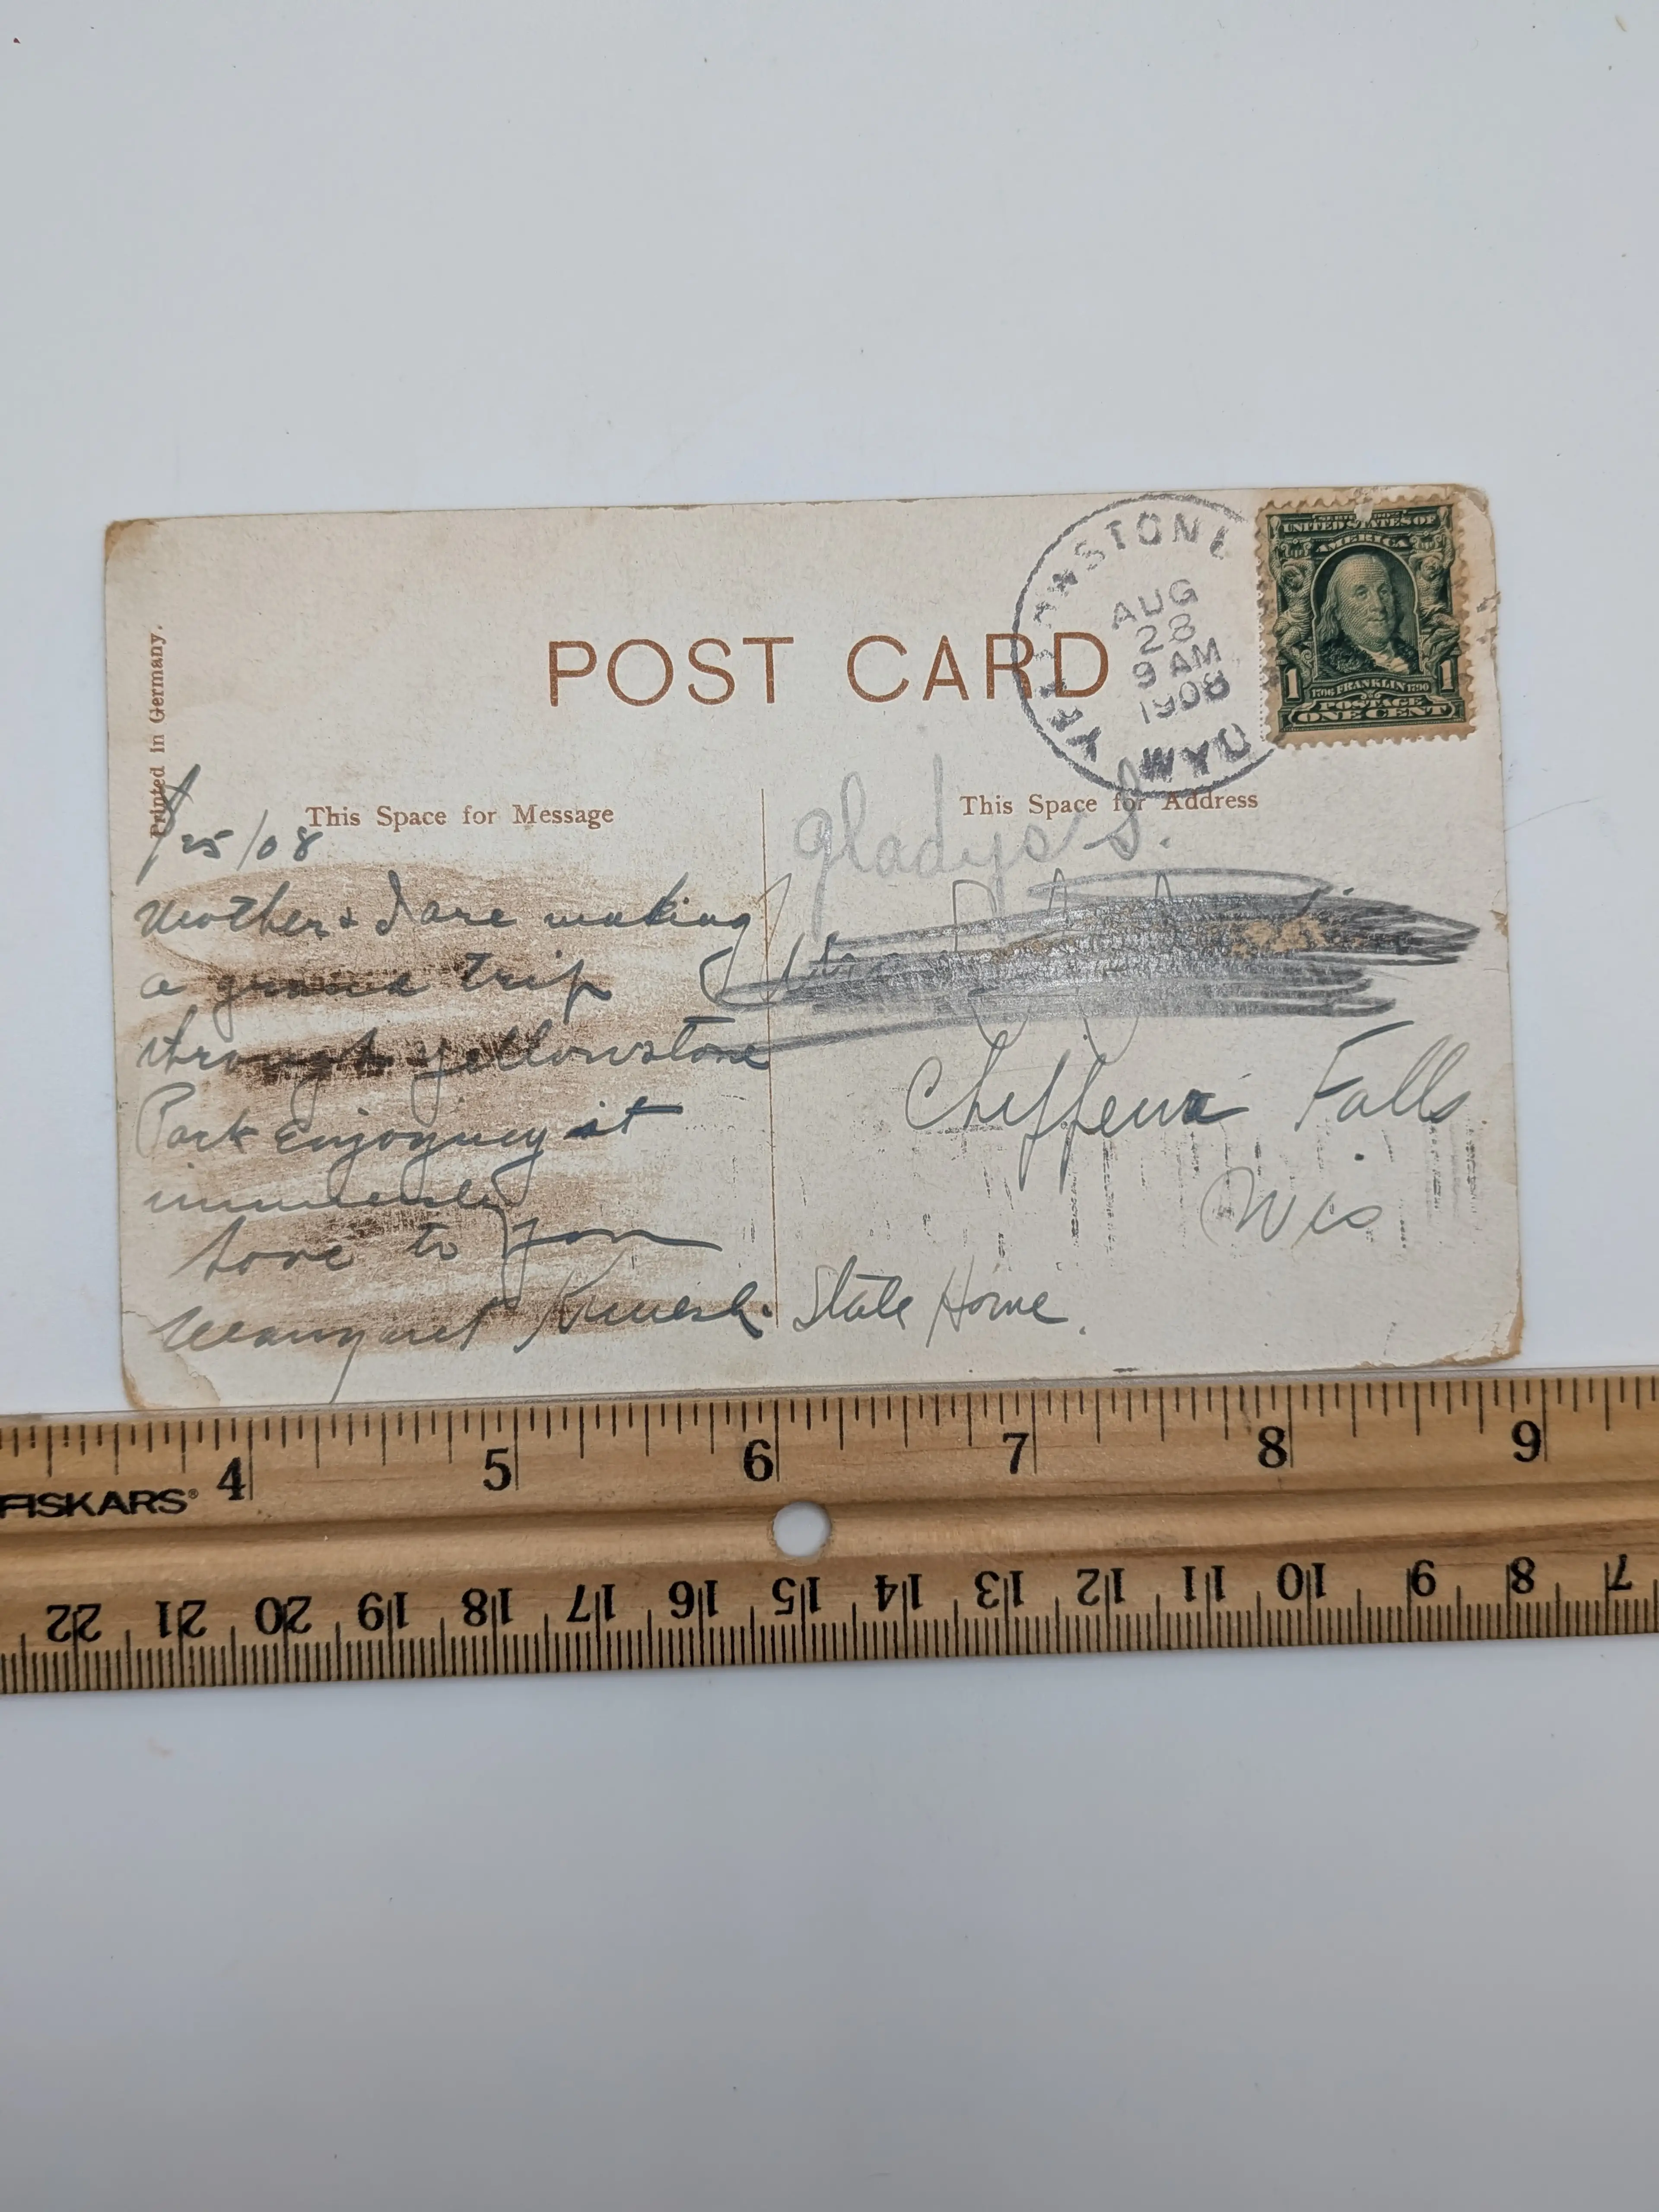 YELLOWSTONE
AUG
28
9 AM
1908
WYO
UNITED STATES OF
AMERICA
1 1706 FRANKLIN 1790 1
POSTAGE
ONE CENT
POST CARD
Printed in Germany.
This Space for Message
This Space for Address
/25/08
Mother & I are making
a grand trip
through yellowstone
Park enjoying it
immensely
Love to you
Margaret
Gladys S.
Falls
Wis
State Home.
4 5 6 7 8 9
FISKARS®
22 21 20 19 18 17 16 15 14 13 12 11 10 9 8 7